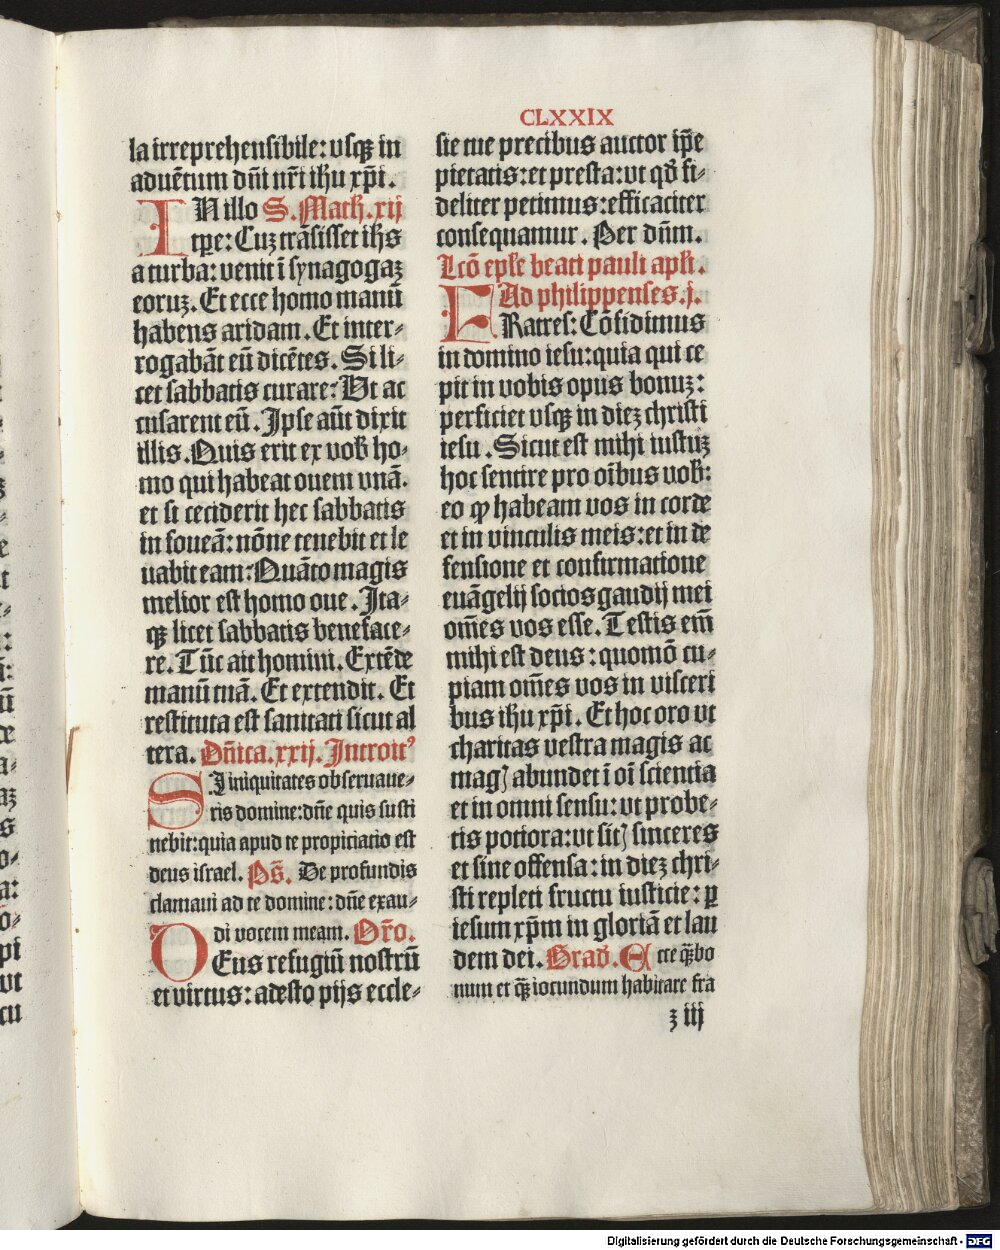 CLXXIX
la irreprehensibile: vsqꝫ in
aduētum dn̄i nr̄i ihu xp̄i.
IN illo S. Math. xij
tp̄e: Cuꝫ trāsisset ih̄s
a turba: venit ī synagogaꝫ
eoruꝫ. Et ecce homo manū
habens aridam. Et inter-
rogabāt eū dicētes. Si li-
cet sabbatis curare: Vt ac
cusarent eū. Ipse aūt dixit
illis. Quis erit ex vob̄ ho-
mo qui habeat ouem vnā.
et si ceciderit hec sabbatis
in foueā: nōne tenebit et le
uabit eam: Quāto magis
melior est homo oue. Ita-
qꝫ licet sabbatis beneface-
re. Tūc ait homini. Extēde
manū tuā. Et extendit. Et
restituta est sanitati sicut al
tera. Dn̄ica. xxij. Introitꝰ
S.I iniquitates obseruaue-
ris domine: dn̄e quis susti
nebit: quia apud te propiciatio est
deus israel. Ps̄. De profundis
clamaui ad te domine: dn̄e exau-
di vocem meam. Or̄o.
DEus refugiū nostrū
et virtus: adesto pijs eccle-
sie tue precibus auctor ip̄e
pietatis: et presta: vt qd̄ fi-
deliter petimus: efficaciter
consequamur. Per dn̄m.
Lcō epl̄e beati pauli apl̄i.
Ad philippenses. j.
FRatres: Cōfidimus
in domino iesu: quia qui ce
pit in vobis opus bonuꝫ:
perficiet vsqꝫ in dieꝫ christi
iesu. Sicut est mihi iustuꝫ
hoc sentire pro oībus vob̄:
eo ꝙ habeam vos in corde
et in vinculis meis: et in de
fensione et confirmatione
euāgelij socios gaudij mei
om̄es vos esse. Testis em̄
mihi est deus: quomō cu-
piam om̄es vos in visceri
bus ihu xp̄i. Et hoc oro vt
charitas vestra magis ac
magꝭ abundet ī oī scientia
et in omni sensu: vt probe-
tis potiora: vt sitꝭ sinceres
et sine offensa: in dieꝫ chri-
sti repleti fructu iusticie: ꝑ
iesum xp̄m in gloriā et lau
dem dei. Grad̄. Ecce qꝫ̄ bo
num et qꝫ̄ iocundum habitare fra
ꝫ iij
Digitalisierung gefördert durch die Deutsche Forschungsgemeinschaft - DFG